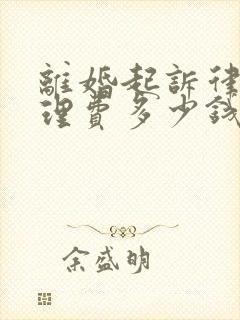 離婚起訴律
理費多少錢
余盛明